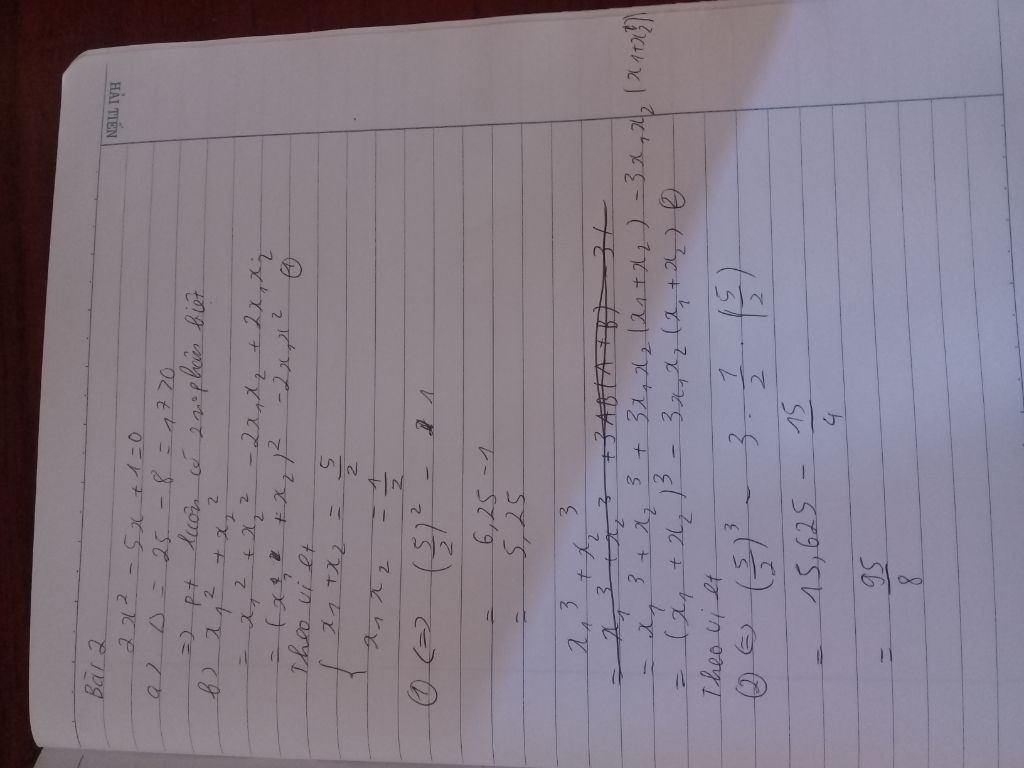 HẢI TIẾN
Bài 2
2x² - 5x + 1 = 0
a) Δ = 25 - 8 = 17 > 0
=> pt luôn có 2 no phân biệt
b) x₁² + x₂²
= x₁² + x₂² - 2x₁x₂ + 2x₁x₂
= (x₁ + x₂)² - 2x₁ ①
Theo vi et
{ x₁ + x₂ = 5/2
x₁ x₂ = 1/2
① <=> (5/2)² - 1
= 6,25 - 1
= 5,25
x₁³ + x₂³
= x₁³ + x₂³ + 3AB(A+B) - 3(
= x₁³ + x₂³ + 3x₁x₂(x₁+x₂) - 3x₁x₂(x₁+x₂)
= (x₁ + x₂)³ - 3x₁x₂(x₁ + x₂) ②
Theo vi et
② <=> (5/2)³ - 3 . 1/2 . (5/2)
= 15,625 - 15/4
= 95/8